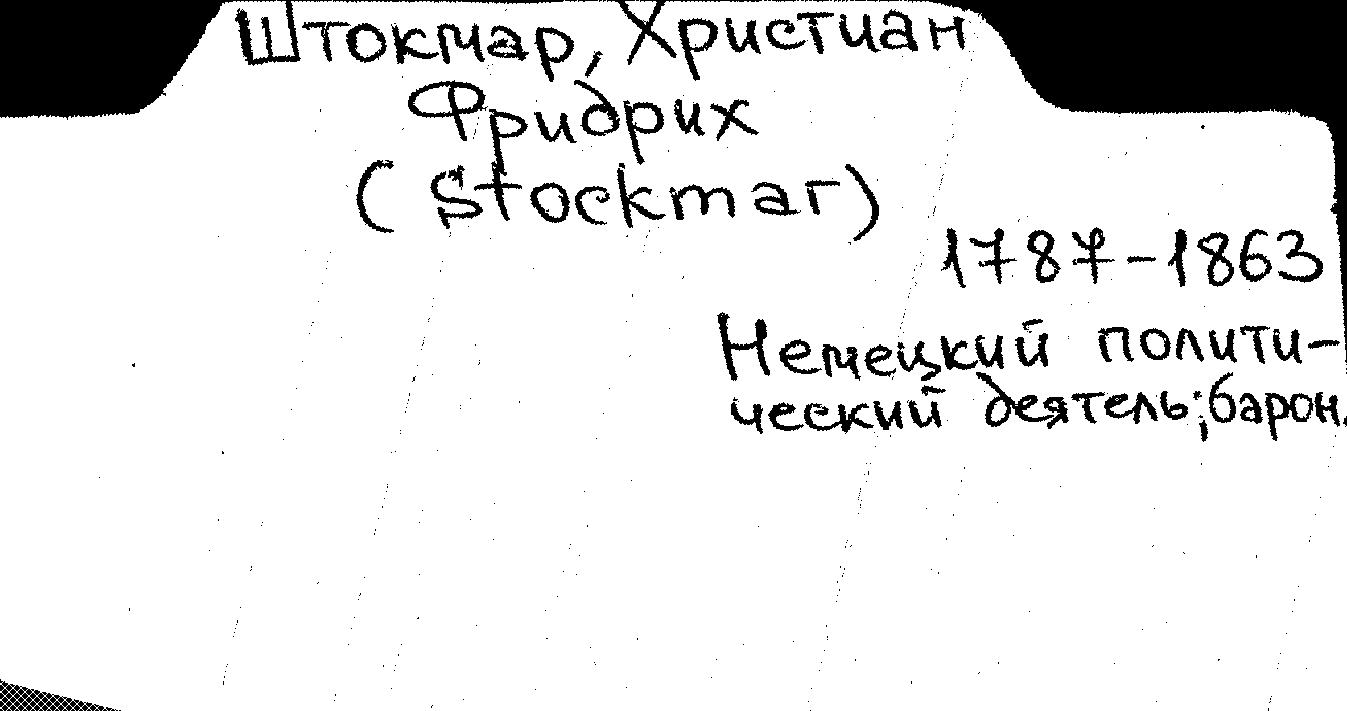 Штокмар, Христиан
Фридрих
(Stockmar)
1787-1863
Немецкий полити-
ческий деятель; барон.